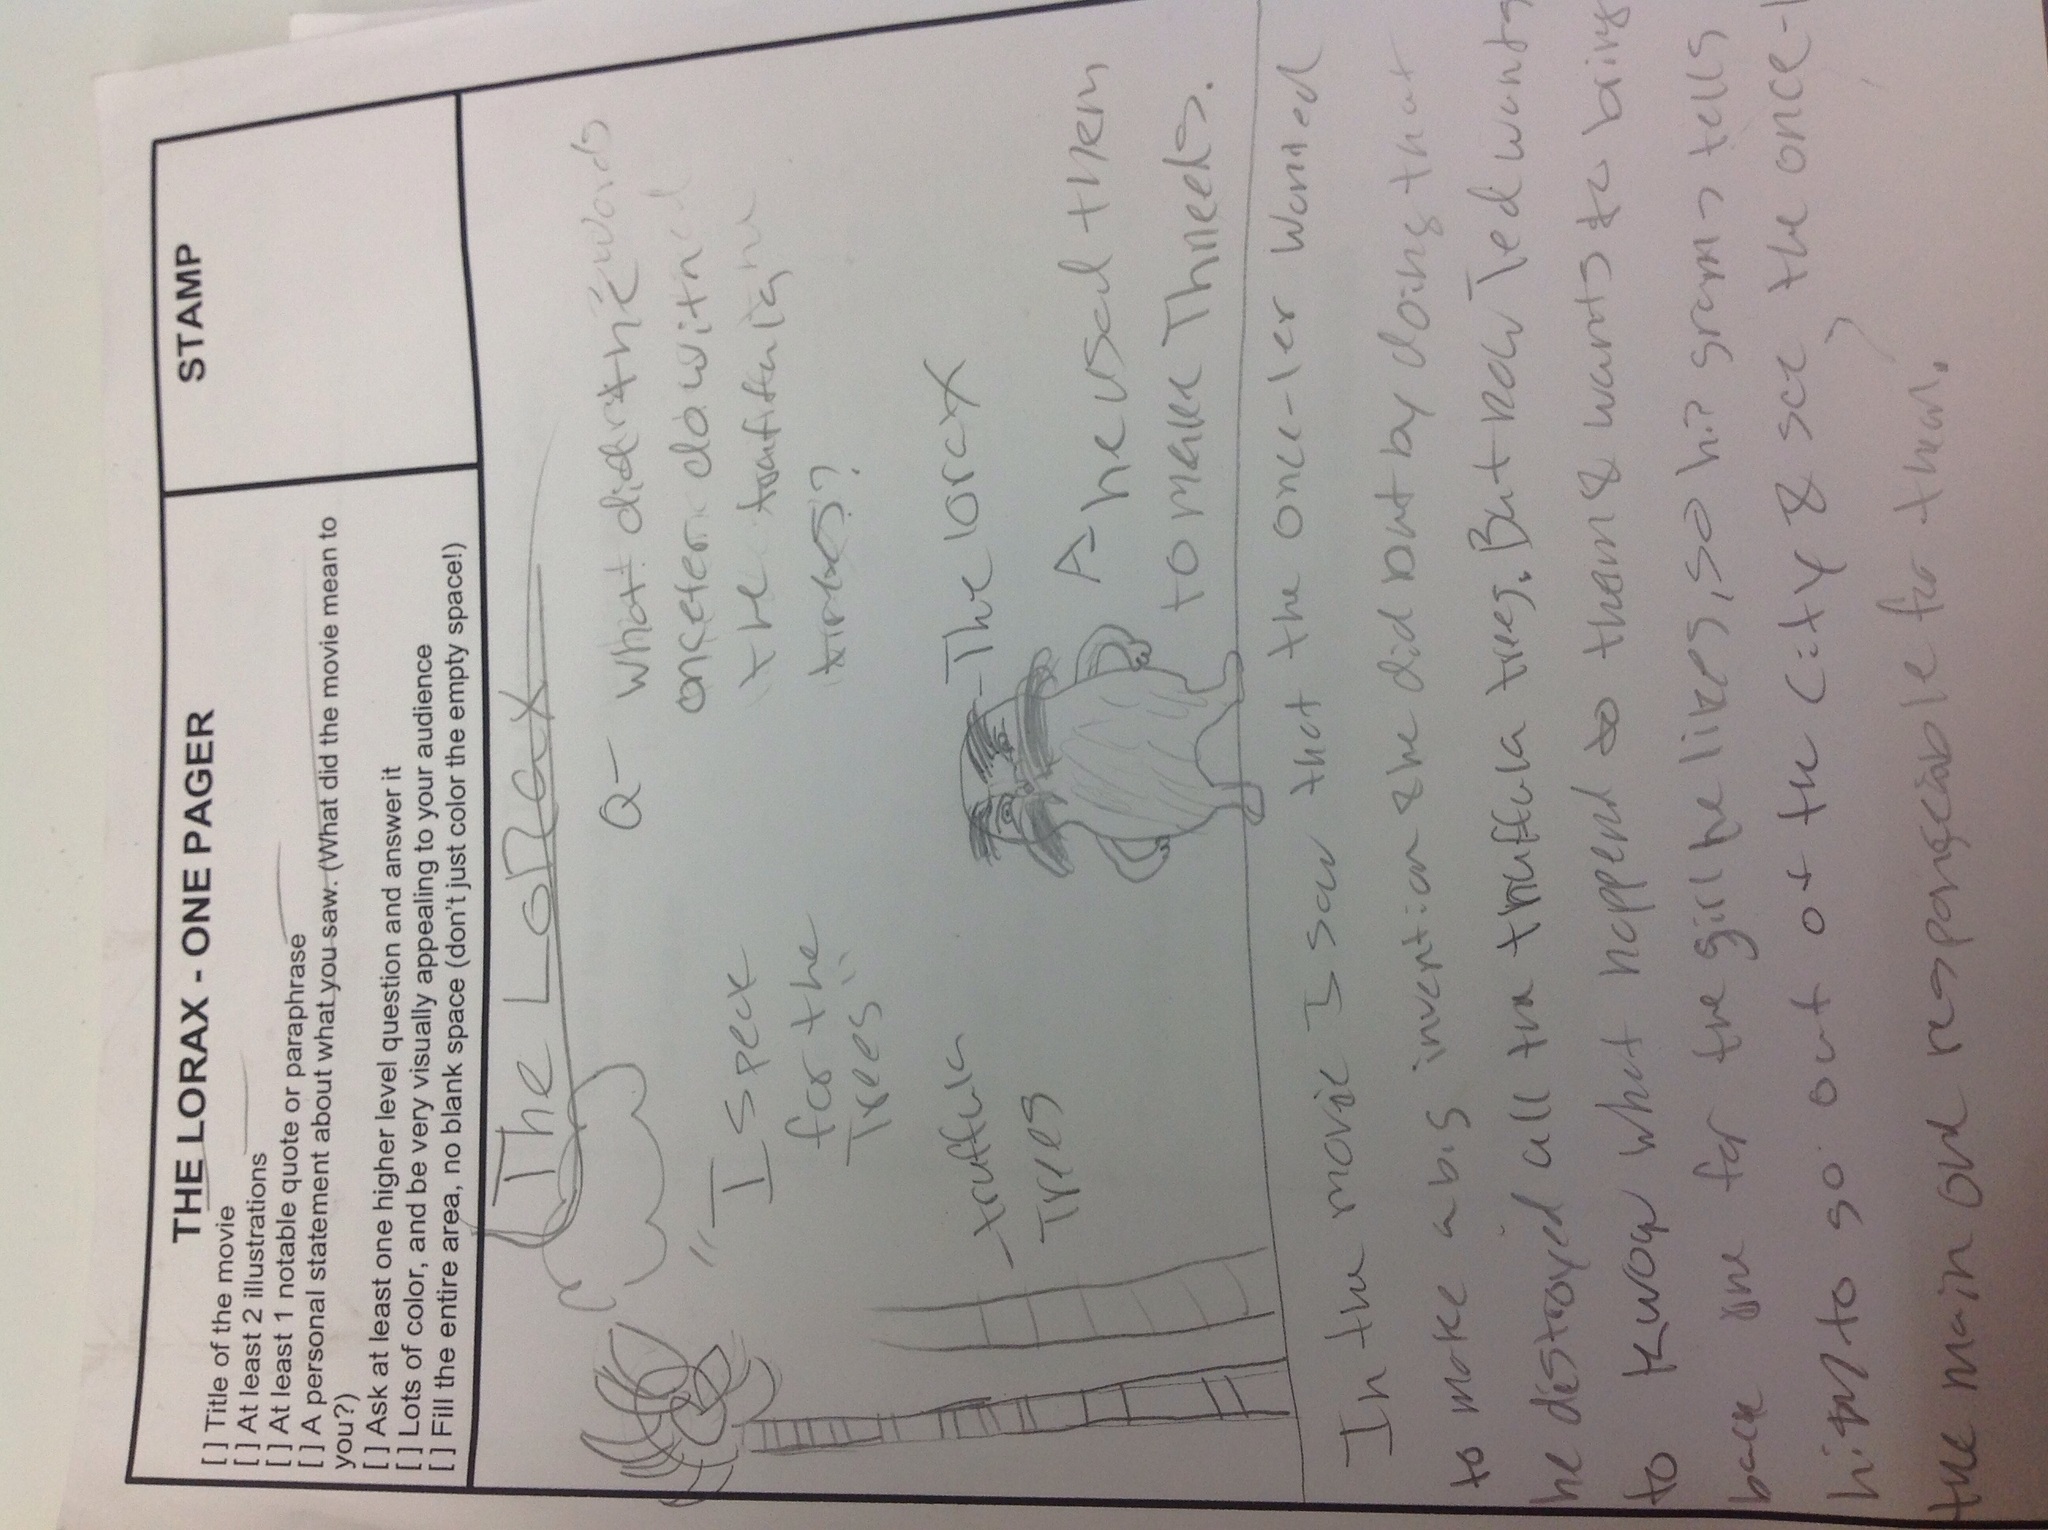 THE LORAX - ONE PAGER
STAMP
[ ] Title of the movie
[ ] At least 2 illustrations
[ ] At least 1 notable quote or paraphrase
[ ] A personal statement about what you saw. (What did the movie mean to
you?)
[ ] Ask at least one higher level question and answer it
[ ] Lots of color, and be very visually appealing to your audience
[ ] Fill the entire area, no blank space (don't just color the empty space!)
The Lorax
Q- What did the
onceler do with
the truffula
trees?
"I speck
for the
Trees"
-truffula
Trees
-The lorax
A- he used them
to make Thneeds.
In the movie I saw that the once-ler wanted
to make a big invention & he did but by doing that
he destroyed all the truffula trees. But now Ted wants
to know what happend to them & wants to bring
back one for the girl he likes, so his gram tells
him to go out of the city & see the once-l
the main one responsciable for them.